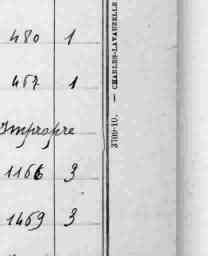 480 1
467 1
Impropre
1166 3
1469 3
3709-10. — CHARLES-LAVAUZELLE